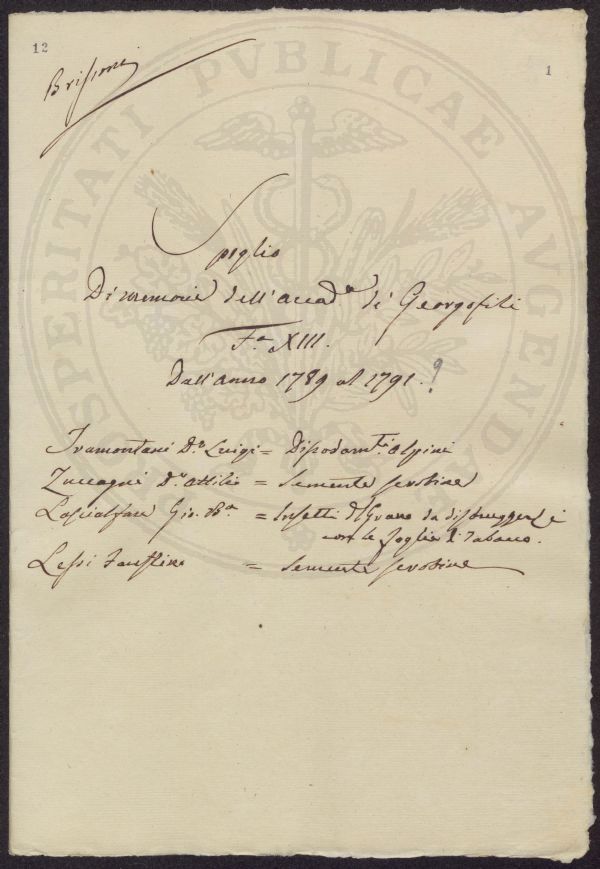 12
1
PROSPERITATI PVBLICAE AVGENDAE
Spoglio
Di memorie dell'Accad.a de' Georgofili
F.a XIII.
Dall'anno 1789 al 1791. ?
Tramontani D.r Luigi =
Alpini
Zuccagni D.r Attilio = Semente serotine
Lascialfare Gio. B.a = Insetti del Grano da distruggersi
con le foglie di Tabacco.
Lessi Faustino = Semente serotine